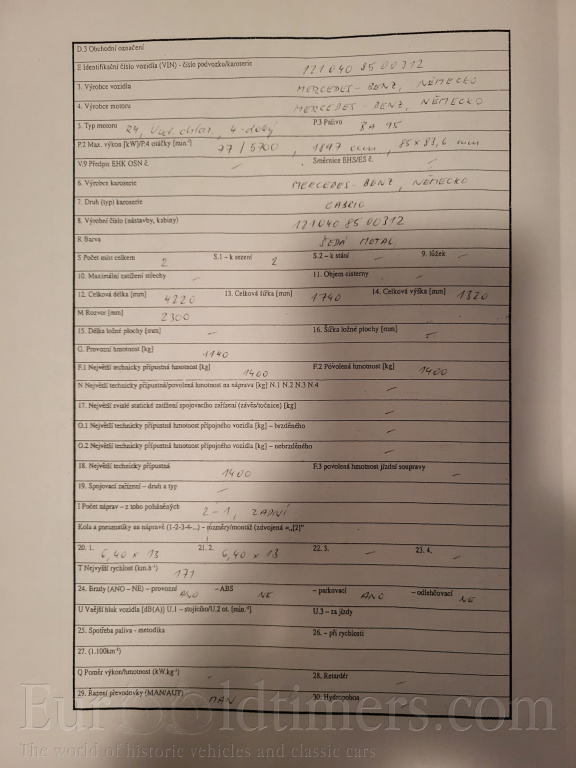 D.3 Obchodní označení
E Identifikační číslo vozidla (VIN) - číslo podvozku/karoserie 121040 85 00312
3. Výrobce vozidla MERCEDES-BENZ, NĚMECKO
4. Výrobce motoru MERCEDES-BENZ, NĚMECKO
5. Typ motoru 4-dobý P.3 Palivo BA 95
P.2 Max. výkon [kW]/P.4 otáčky [min⁻¹] 77/5700, 1897 ccm, 85 x 83,6 mm
V.9 Předpis EHK OSN č. - Směrnice EHS/ES č. -
6. Výrobce karoserie MERCEDES-BENZ, NĚMECKO
7. Druh (typ) karoserie CABRIO
8. Výrobní číslo (nástavby, kabiny) 121040 85 00312
R Barva ŠEDÁ METAL
S Počet míst celkem 2 S.1 - k sezení 2 S.2 - k stání - 9. lůžek -
10. Maximální zatížení střechy - 11. Objem cisterny -
12. Celková délka [mm] 4220 13. Celková šířka [mm] 1740 14. Celková výška [mm] 1320
M Rozvor [mm] 2300
15. Délka ložné plochy [mm] - 16. Šířka ložné plochy [mm] -
G. Provozní hmotnost [kg] 1140
F.1 Největší technicky přípustná hmotnost [kg] 1400 F.2 Povolená hmotnost [kg] 1400
N Největší technicky přípustná/povolená hmotnost na nápravu [kg] N.1 N.2 N.3 N.4 -
17. Největší svislé statické zatížení spojovacího zařízení (závěs/točnice) [kg] -
O.1 Největší technicky přípustná hmotnost přípojného vozidla [kg] – brzděného -
O.2 Největší technicky přípustná hmotnost přípojného vozidla [kg] – nebrzděného -
18. Největší technicky přípustná 1400 F.3 povolená hmotnost jízdní soupravy -
19. Spojovací zařízení – druh a typ -
I Počet náprav – z toho poháněných 2-1, ZADNÍ
Kola a pneumatiky na nápravě (1-2-3-4-...) – rozměry/montáž (zdvojená =„[2]"
20. 1. 6,40 x 13 21. 2. 6,40 x 13 22. 3. - 23. 4. -
T Nejvyšší rychlost (km.h⁻¹) 171
24. Brzdy (ANO – NE) – provozní ANO – ABS NE – parkovací ANO – odlehčovací NE
U Vnější hluk vozidla [dB(A)] U.1 – stojícího/U.2 ot. [min.⁻¹] U.3 – za jízdy
25. Spotřeba paliva - metodika 26. - při rychlosti
27. (l.100km⁻¹)
Q Poměr výkon/hmotnost (kW.kg⁻¹) - 28. Retardér -
29. Řazení převodovky (MAN/AUT) MAN 30. Hydropohon
EuroOldtimers.com
The world of historic vehicles and classic cars